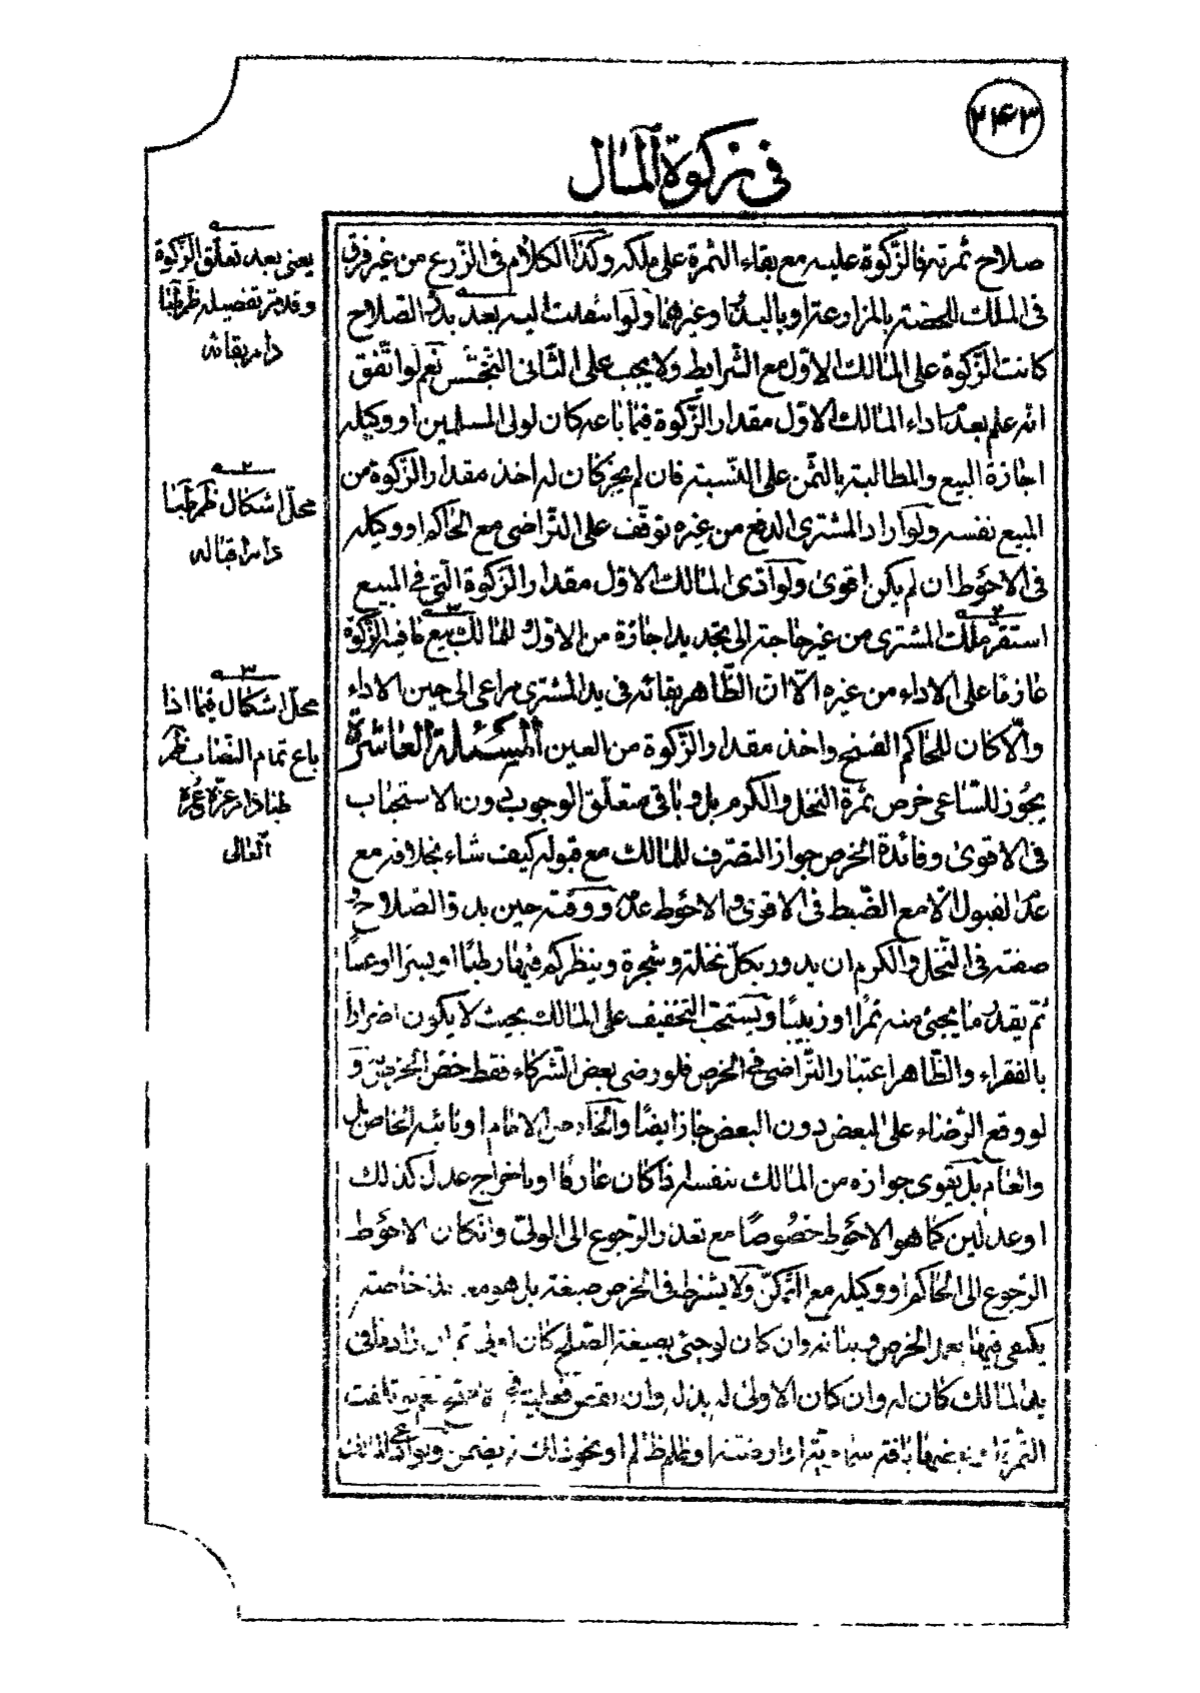 ۲۴۳
في زكوة المال
صلاح ثمرته فالزّكوة عليه مع بقاء الثمرة على ملكه وكذا الكلام في الزّرع من غير فرق
في الملك للحصّة بالمزارعة او بالبذر او غيرهما ولو انتقلت اليه بعد بدوّ الصّلاح
كانت الزّكوة على المالك الاوّل مع الشّرايط ولا يجب على الثاني التّجسّس نعم لو اتّفق
انّه علم بعدم اداء المالك الاوّل مقدار الزّكوة فيما باعه كان لولى المسلمين او وكيله
اجازة البيع والمطالبة بالثّمن على النّسبة فان لم يجز كان له اخذ مقدار الزّكوة من
المبيع نفسه ولو اراد المشترى الدفع من غيره توقّف على التّراضى مع الحاكم او وكيله
في الاحوط ان لم يكن اقوى ولو ادّى المالك الاوّل مقدار الزّكوة الّتي في المبيع
استقرّ ملك المشترى من غير حاجة الى تجديد اجازة من الاوّل للمالك بيع ما فيه الزّكوة
عازما على الاداء من غيره الّا انّ الظّاهر بقائه في يد المشترى مراعى الى حين الاداء
والّا كان للحاكم الفسخ واخذ مقدار الزّكوة من العين المسئلة العاشرة
يجوز للسّاعى خرص ثمرة النخل والكرم بل وباقى متعلّق الوجوب دون الاستحباب
في الاقوى وفائدة الخرص جواز التصرّف للمالك مع قبوله كيف شاء بخلافه مع
عدم القبول الّا مع الضّبط في الاقوى والاحوط عدمه ووقته حين بدوّ الصّلاح و
صفته في النّخل والكرم ان يدور بكلّ نخلة وشجرة وينظر كم فيها رطبًا او بسرا او عنبًا
ثم يقدّر ما يجيئ منه تمرًا او زبيبًا ويستحبّ التّخفيف على المالك بحيث لا يكون اضرارًا
بالفقراء والظّاهر اعتبار التّراضى في الخرص فلو رضى بعض الشّركاء فقط خصّ الخرص به و
لو وقع الرّضاء على البعض دون البعض جاز ايضًا والخارص الامام او نائبه الخاصّ بل
والعامّ بل يقوى جوازه من المالك بنفسه اذا كان عارفا او باخراج عدل كذلك
او عدلين كما هو الاحوط خصوصًا مع تعذر الرّجوع الى الولىّ وان كان الاحوط
الرّجوع الى الحاكم او وكيله مع التّمكّن ولا يشترط في الخرص صيغة بل هو معاملة خاصّة
يكفى فيها عمل الخرص وبيانه وان كان لو جيئ بصيغة الصّلح كان اولى ثم ان زاد ما في
يد المالك كان له وان كان الاولى له بذله وان نقص فعليه نعم لو تلفت
الثمرة او بعضها بافة سماويّة او ارضيّة او ظلم ظالم او نحو ذلك لم يضمن ولو
۱
يعنى بعد تعلّق الزّكوة
وقد مرّ تفصيله ظم طبا
دام بقائه
۲
محلّ اشكال ظم طبا
دام اقباله
۳
محلّ اشكال فيما اذا
باع تمام النّصاب ظم
طبا
العالى